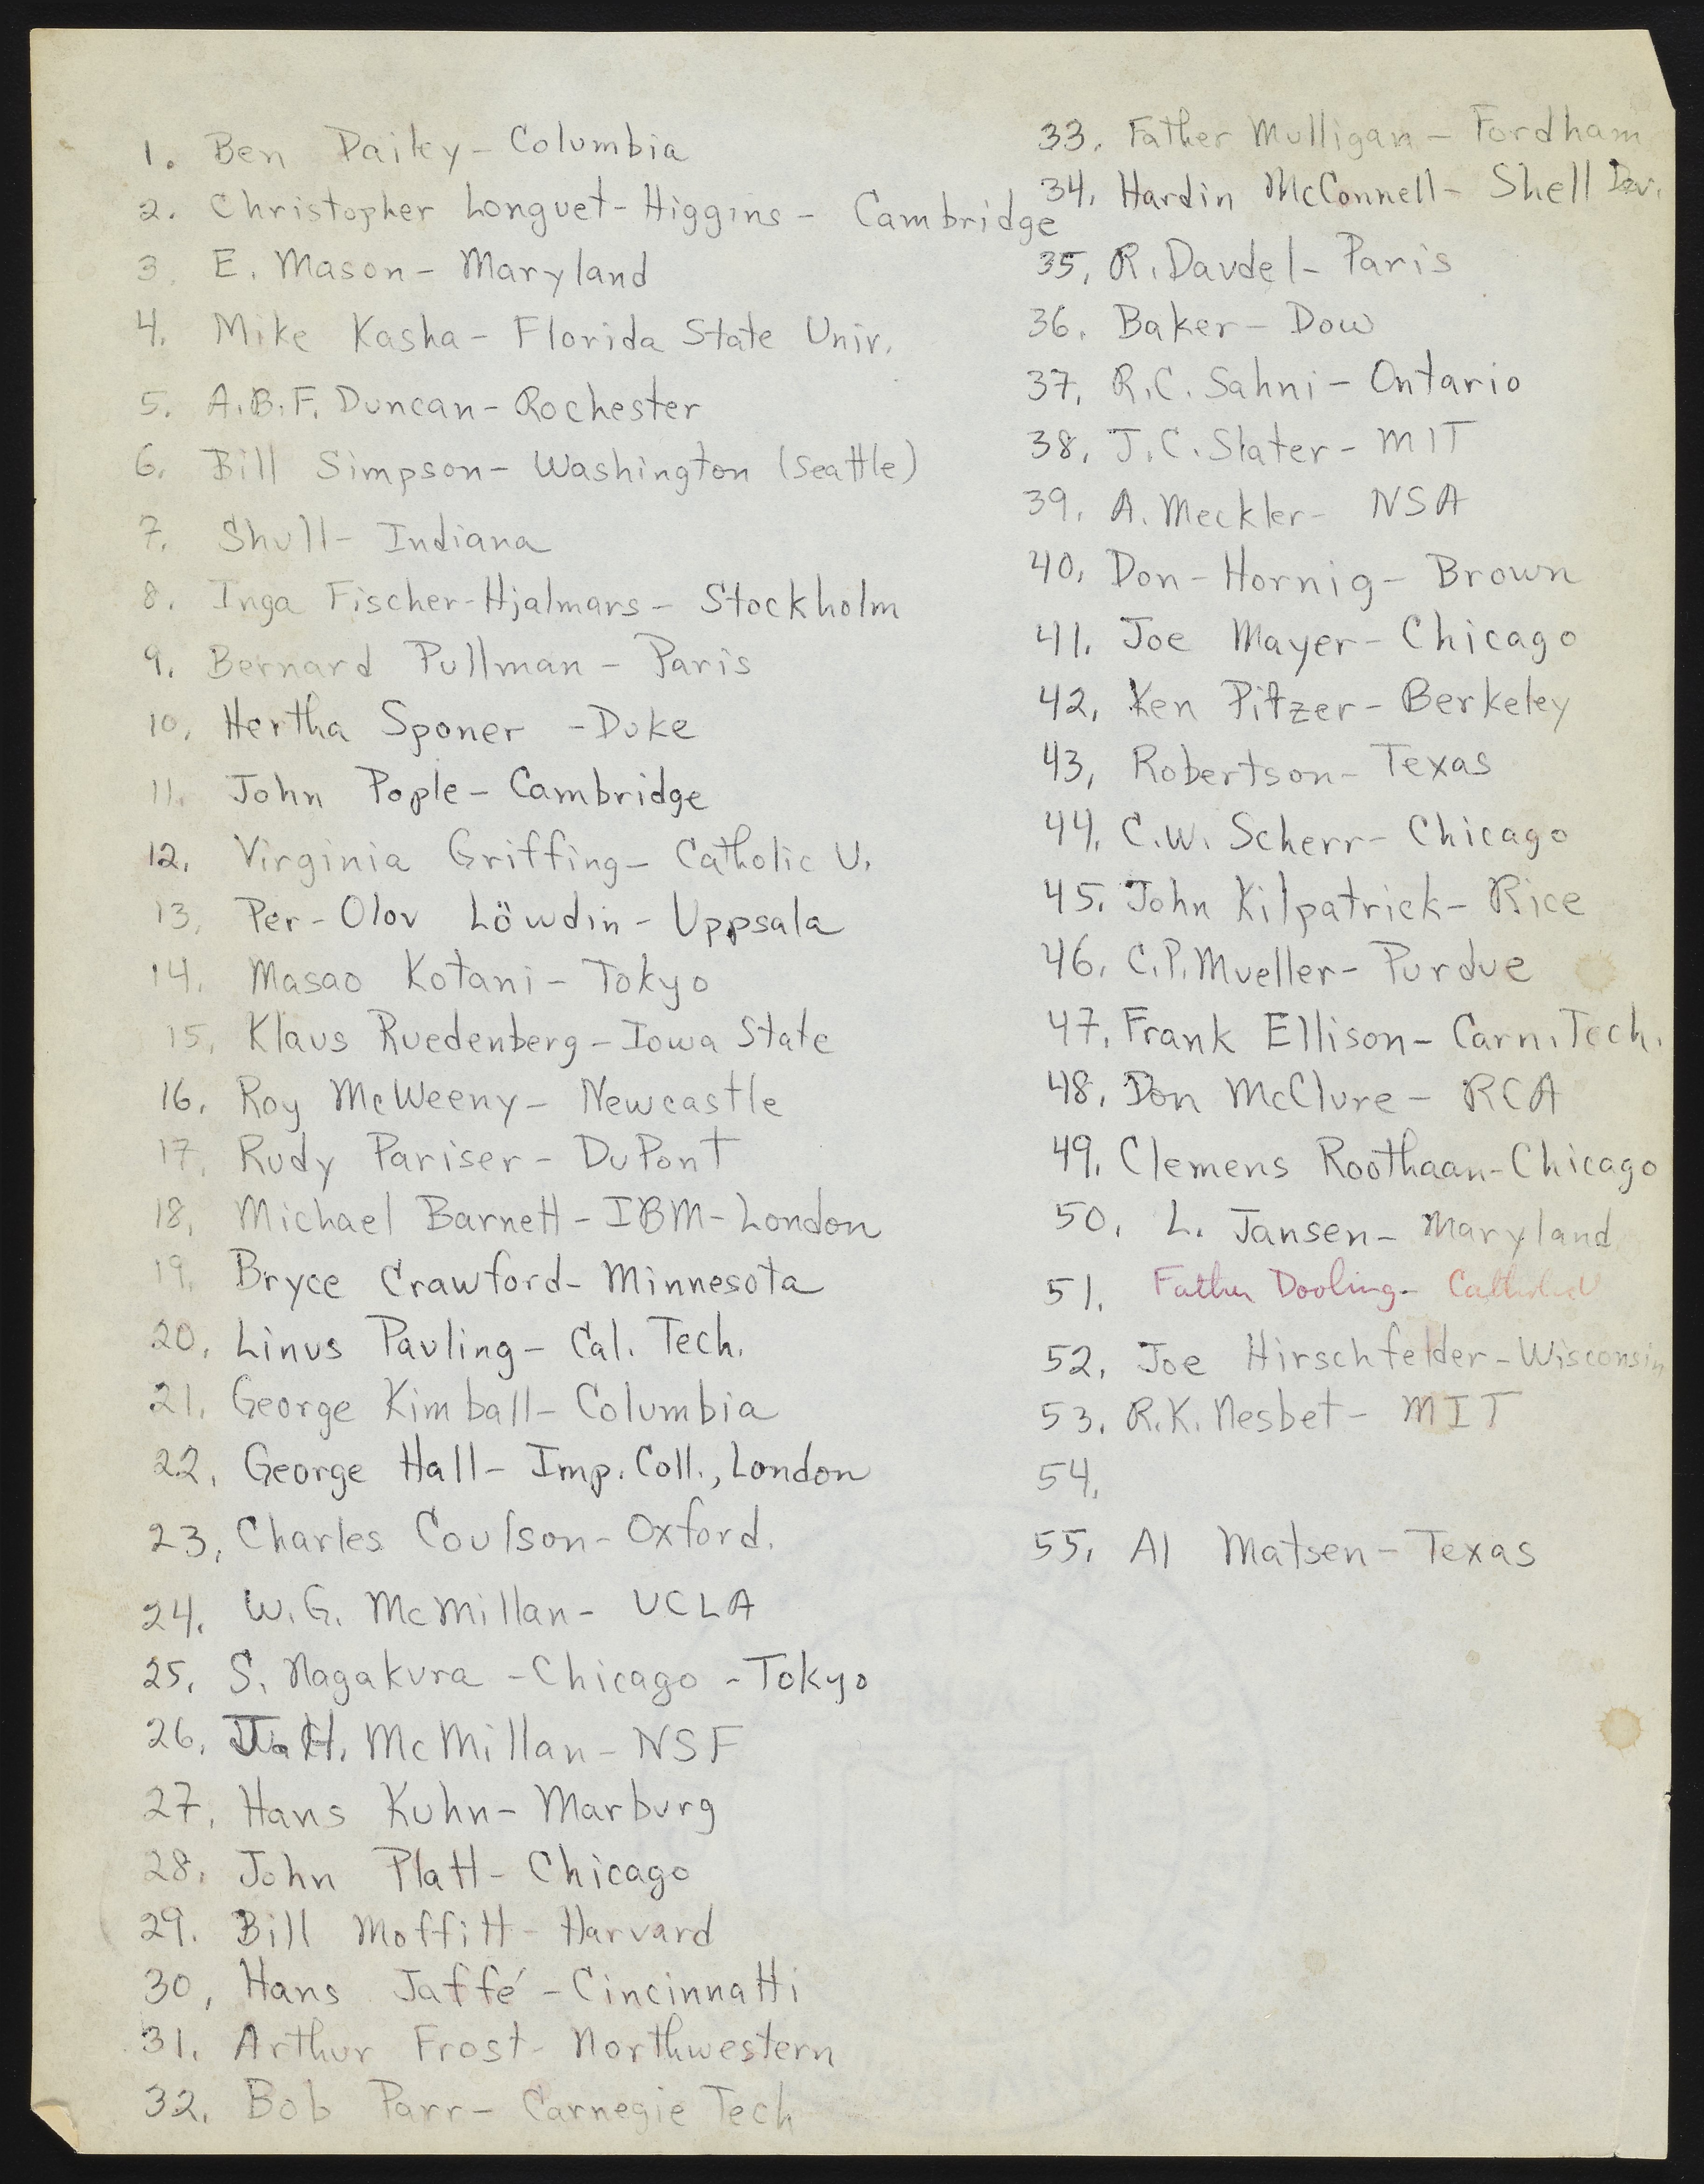 1. Ben Dailey - Columbia
2. Christopher Longuet-Higgins - Cambridge
3. E. Mason - Maryland
4. Mike Kasha - Florida State Univ.
5. A.B.F. Duncan - Rochester
6. Bill Simpson - Washington (Seattle)
7. Shull - Indiana
8. Inga Fischer-Hjalmars - Stockholm
9. Bernard Pullman - Paris
10. Hertha Sponer - Duke
11. John Pople - Cambridge
12. Virginia Griffing - Catholic U.
13. Per-Olov Löwdin - Uppsala
14. Masao Kotani - Tokyo
15. Klaus Ruedenberg - Iowa State
16. Roy McWeeny - Newcastle
17. Rudy Pariser - DuPont
18. Michael Barnett - IBM - London
19. Bryce Crawford - Minnesota
20. Linus Pauling - Cal. Tech.
21. George Kimball - Columbia
22. George Hall - Imp. Coll., London
23. Charles Coulson - Oxford.
24. W.G. McMillan - UCLA
25. S. Nagakura - Chicago - Tokyo
26. H. McMillan - NSF
27. Hans Kuhn - Marburg
28. John Platt - Chicago
29. Bill Moffitt - Harvard
30. Hans Jaffé - Cincinnatti
31. Arthur Frost - Northwestern
32. Bob Parr - Carnegie Tech
33. Father Mulligan - Fordham
34. Hardin McConnell - Shell Dev.
35. R. Daudel - Paris
36. Baker - Dow
37. R.C. Sahni - Ontario
38. J.C. Slater - MIT
39. A. Meckler - NSA
40. Don - Hornig - Brown
41. Joe Mayer - Chicago
42. Ken Pitzer - Berkeley
43. Robertson - Texas
44. C.W. Scherr - Chicago
45. John Kilpatrick - Rice
46. C.P. Mueller - Purdue
47. Frank Ellison - Carn. Tech.
48. Don McClure - RCA
49. Clemens Roothaan - Chicago
50. L. Jansen - Maryland
51. Father Dooling - Catholic U
52. Joe Hirschfelder - Wisconsin
53. R.K. Nesbet - MIT
54.
55. Al Matsen - Texas